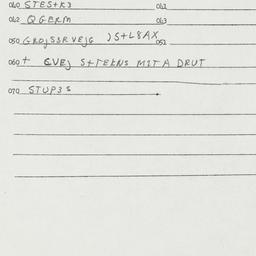 040 STES+K3 041
042 QGERM 043
050 GROJSSRVEJG JS+L8AX 051
060 + EVEJ S+TEKNS MITA DRUT
070 STUP3S